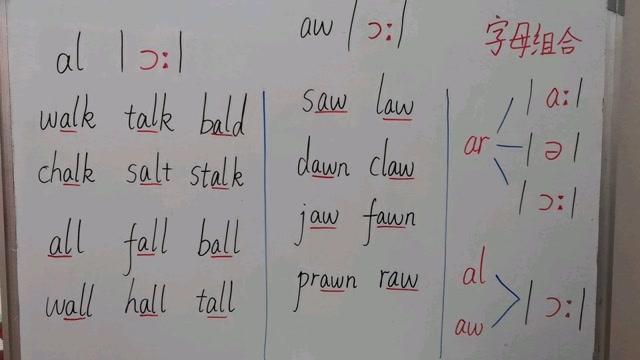 al |ɔ:|
walk talk bald
chalk salt stalk
all fall ball
wall hall tall
aw |ɔ:|
saw law
dawn claw
jaw fawn
prawn raw
字母组合
ar |a:|
|ə|
|ɔ:|
al
aw |ɔ:|